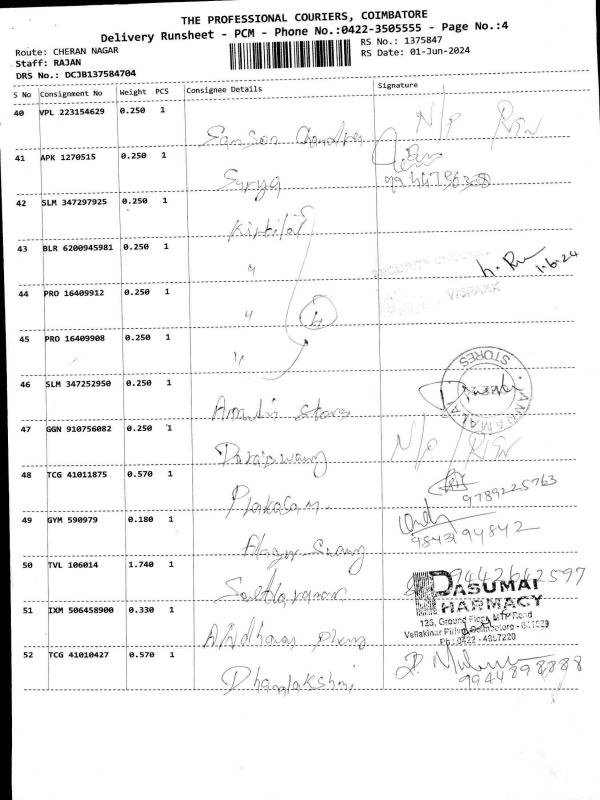 THE PROFESSIONAL COURIERS, COIMBATORE
Delivery Runsheet - PCM - Phone No.:0422-3505555 - Page No.:4
Route: CHERAN NAGAR
RS No.: 1375847
Staff: RAJAN
RS Date: 01-Jun-2024
DRS No.: DCJB137584704
S No Consignment No Weight PCS Consignee Details Signature
40 VPL 223154629 0.250 1 N/P
41 APK 1270515 0.250 1 Surya
42 SLM 347297925 0.250 1
43 BLR 6200945981 0.250 1 " 1-6-24
44 PRO 16409912 0.250 1 " 4 VISPARK
45 PRO 16409908 0.250 1 "
46 SLM 347252950 0.250 1 Stores STORES ANNAMALAI
47 GGN 910756082 0.250 1 N/P
48 TCG 41011875 0.570 1 Prakasam 9789225763
49 GYM 590979 0.180 1 9843194842
50 TVL 106014 1.740 1 9442642597
PASUMAI
PHARMACY
51 IXM 506458900 0.330 1 125, Ground Floor, MTP Road
Coimbatore - 641029
Ph : 0422 - 4957220
52 TCG 41010427 0.570 1 Dhanlakshmi 9944898888